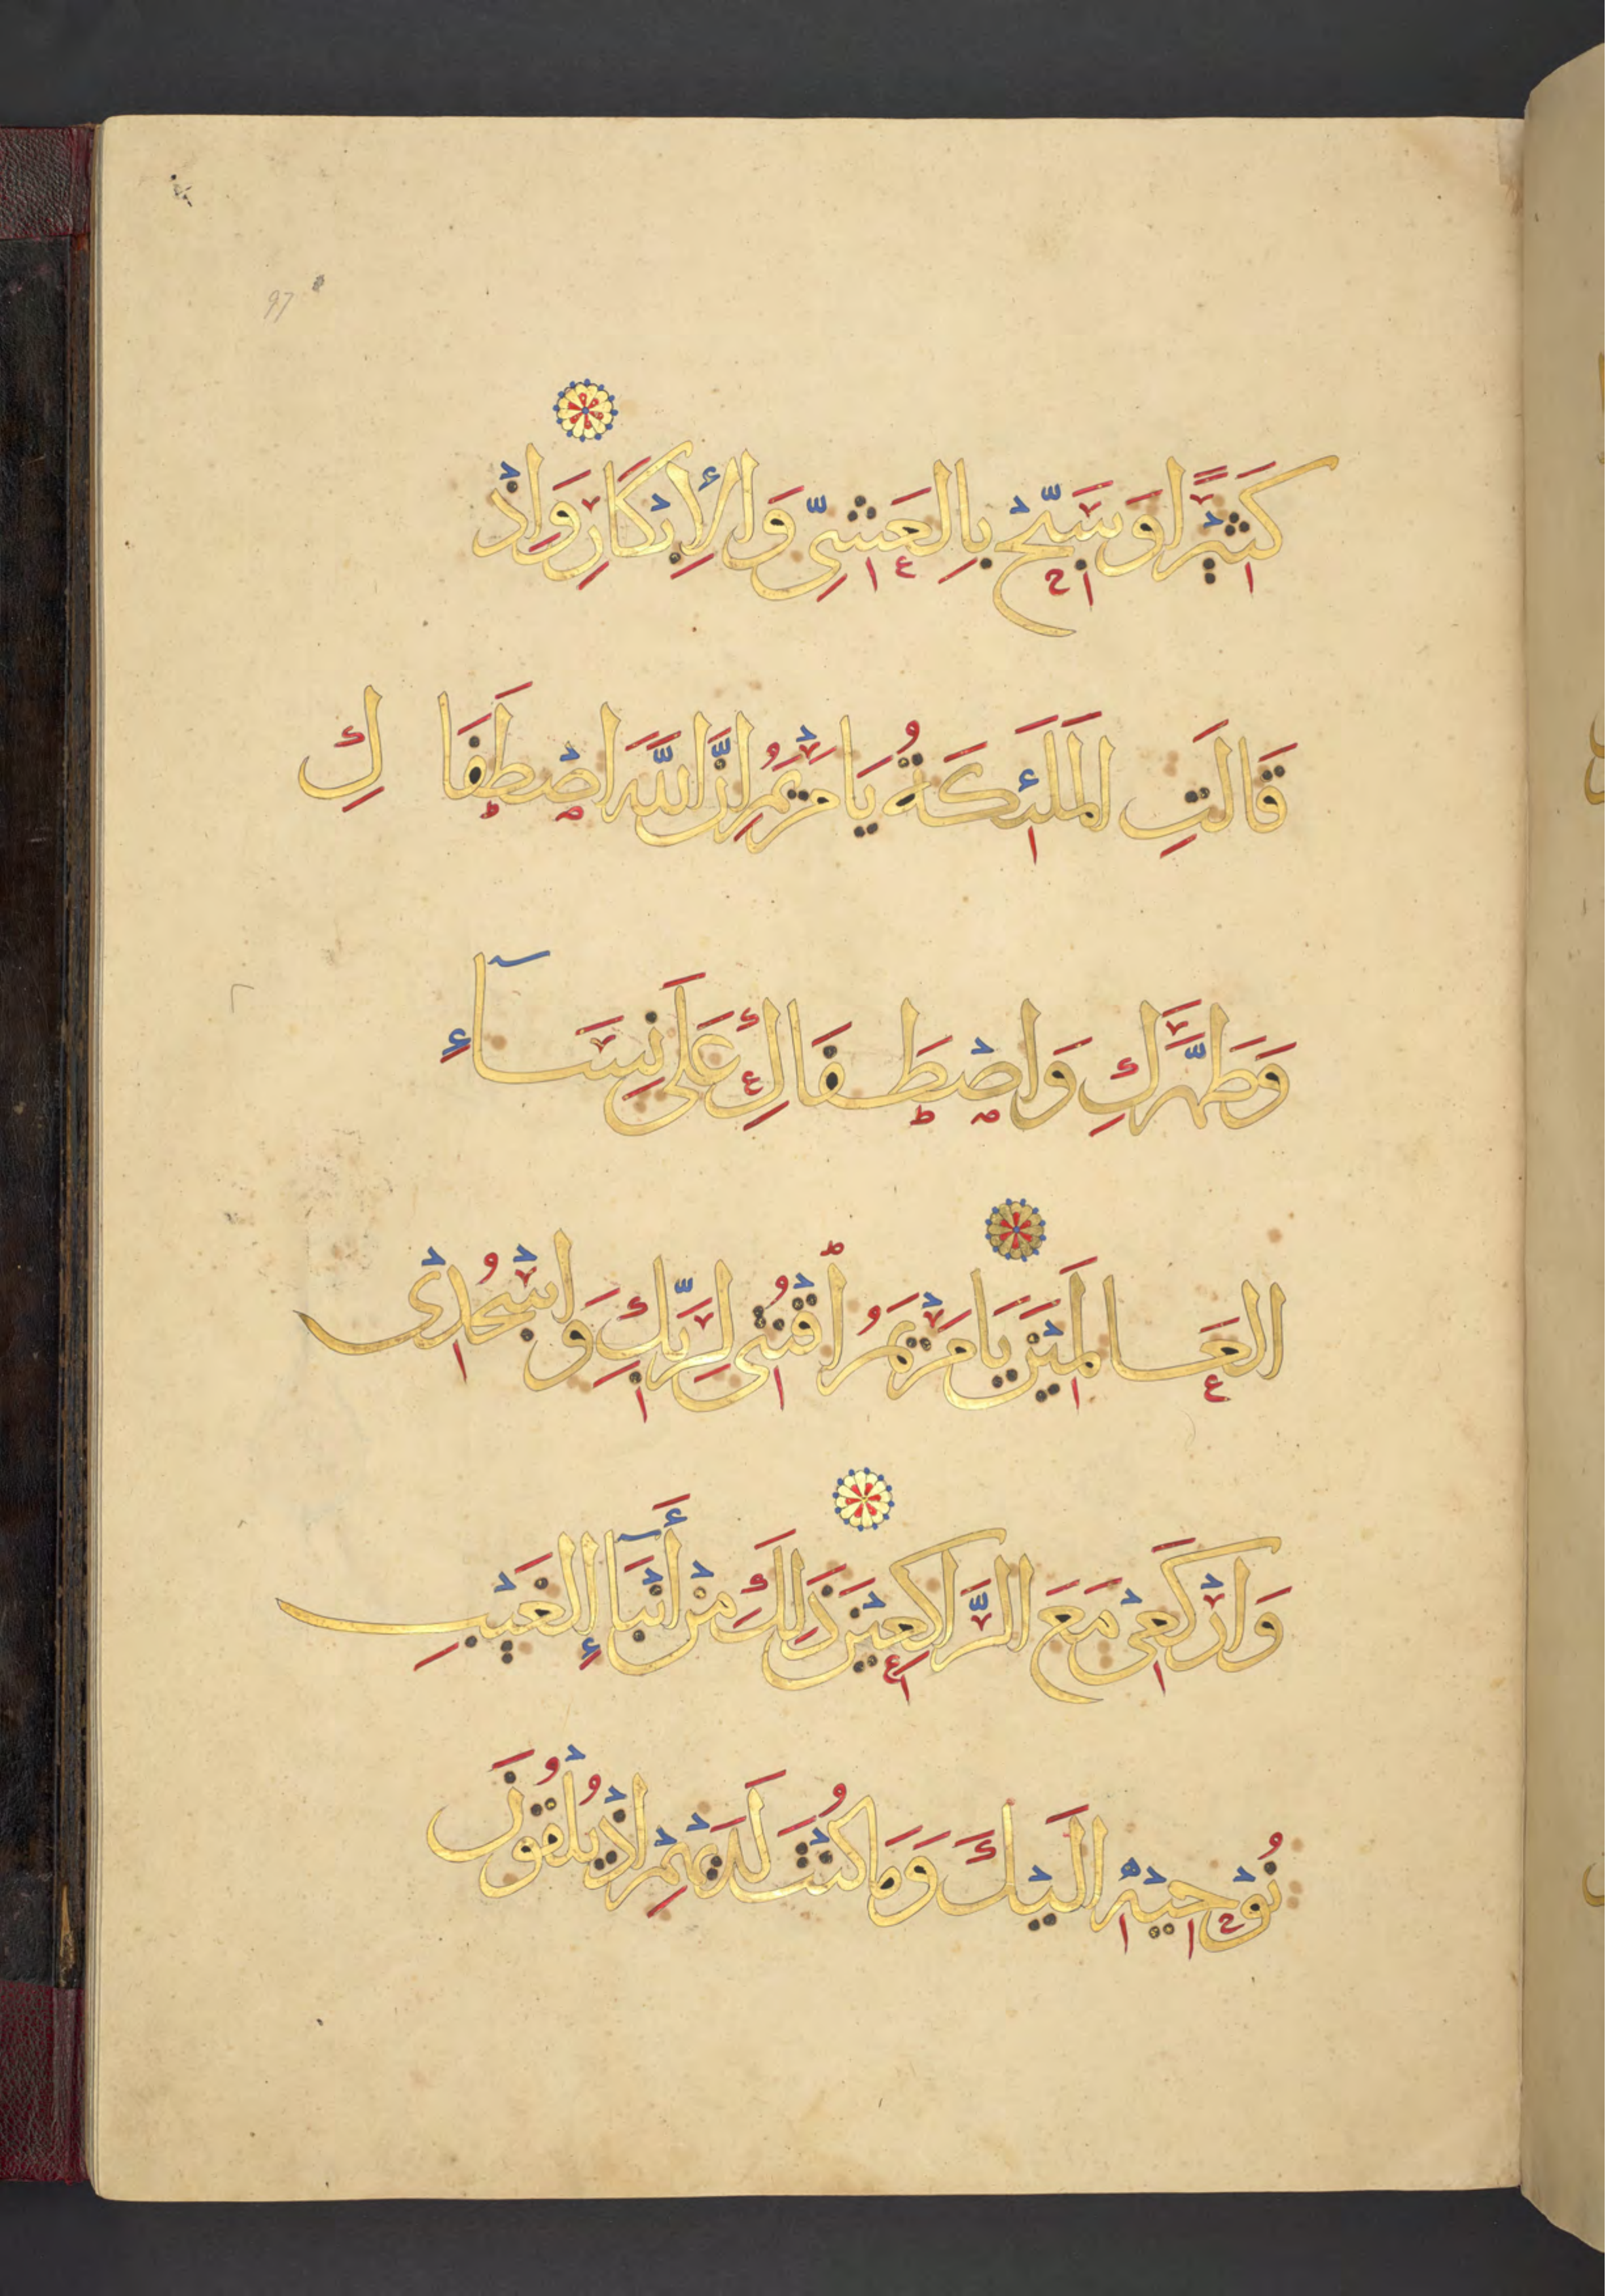 97
كَثِيْرًا وَسَبِّحْ بِالعَشِىِّ وَالْأِبْكَارِ وَاِذْ
قَالَتِ الْمَلَئِكَةُ يَا مَرْيَمُ اِنَّ اللَّهَ اصْطَفَا كِ
وَطَهَّرَكِ وَاصْطَفَاكِ عَلَى نِسَآءِ
العَالَمِيْنَ يَا مَرْيَمُ اقْنُتِى لِرَبِّكِ وَاسْجُدْى
وَارْكَعِىْ مَعَ الرَّاكِعِيْنَ ذَلِكَ مِنْ أَنْبَآءِ الغَيْبِ
نُوْحِيْهِ اِلَيْكَ وَمَا كُنْتَ لَدَيْهِمْ اِذْ يُلْقُوْنَ